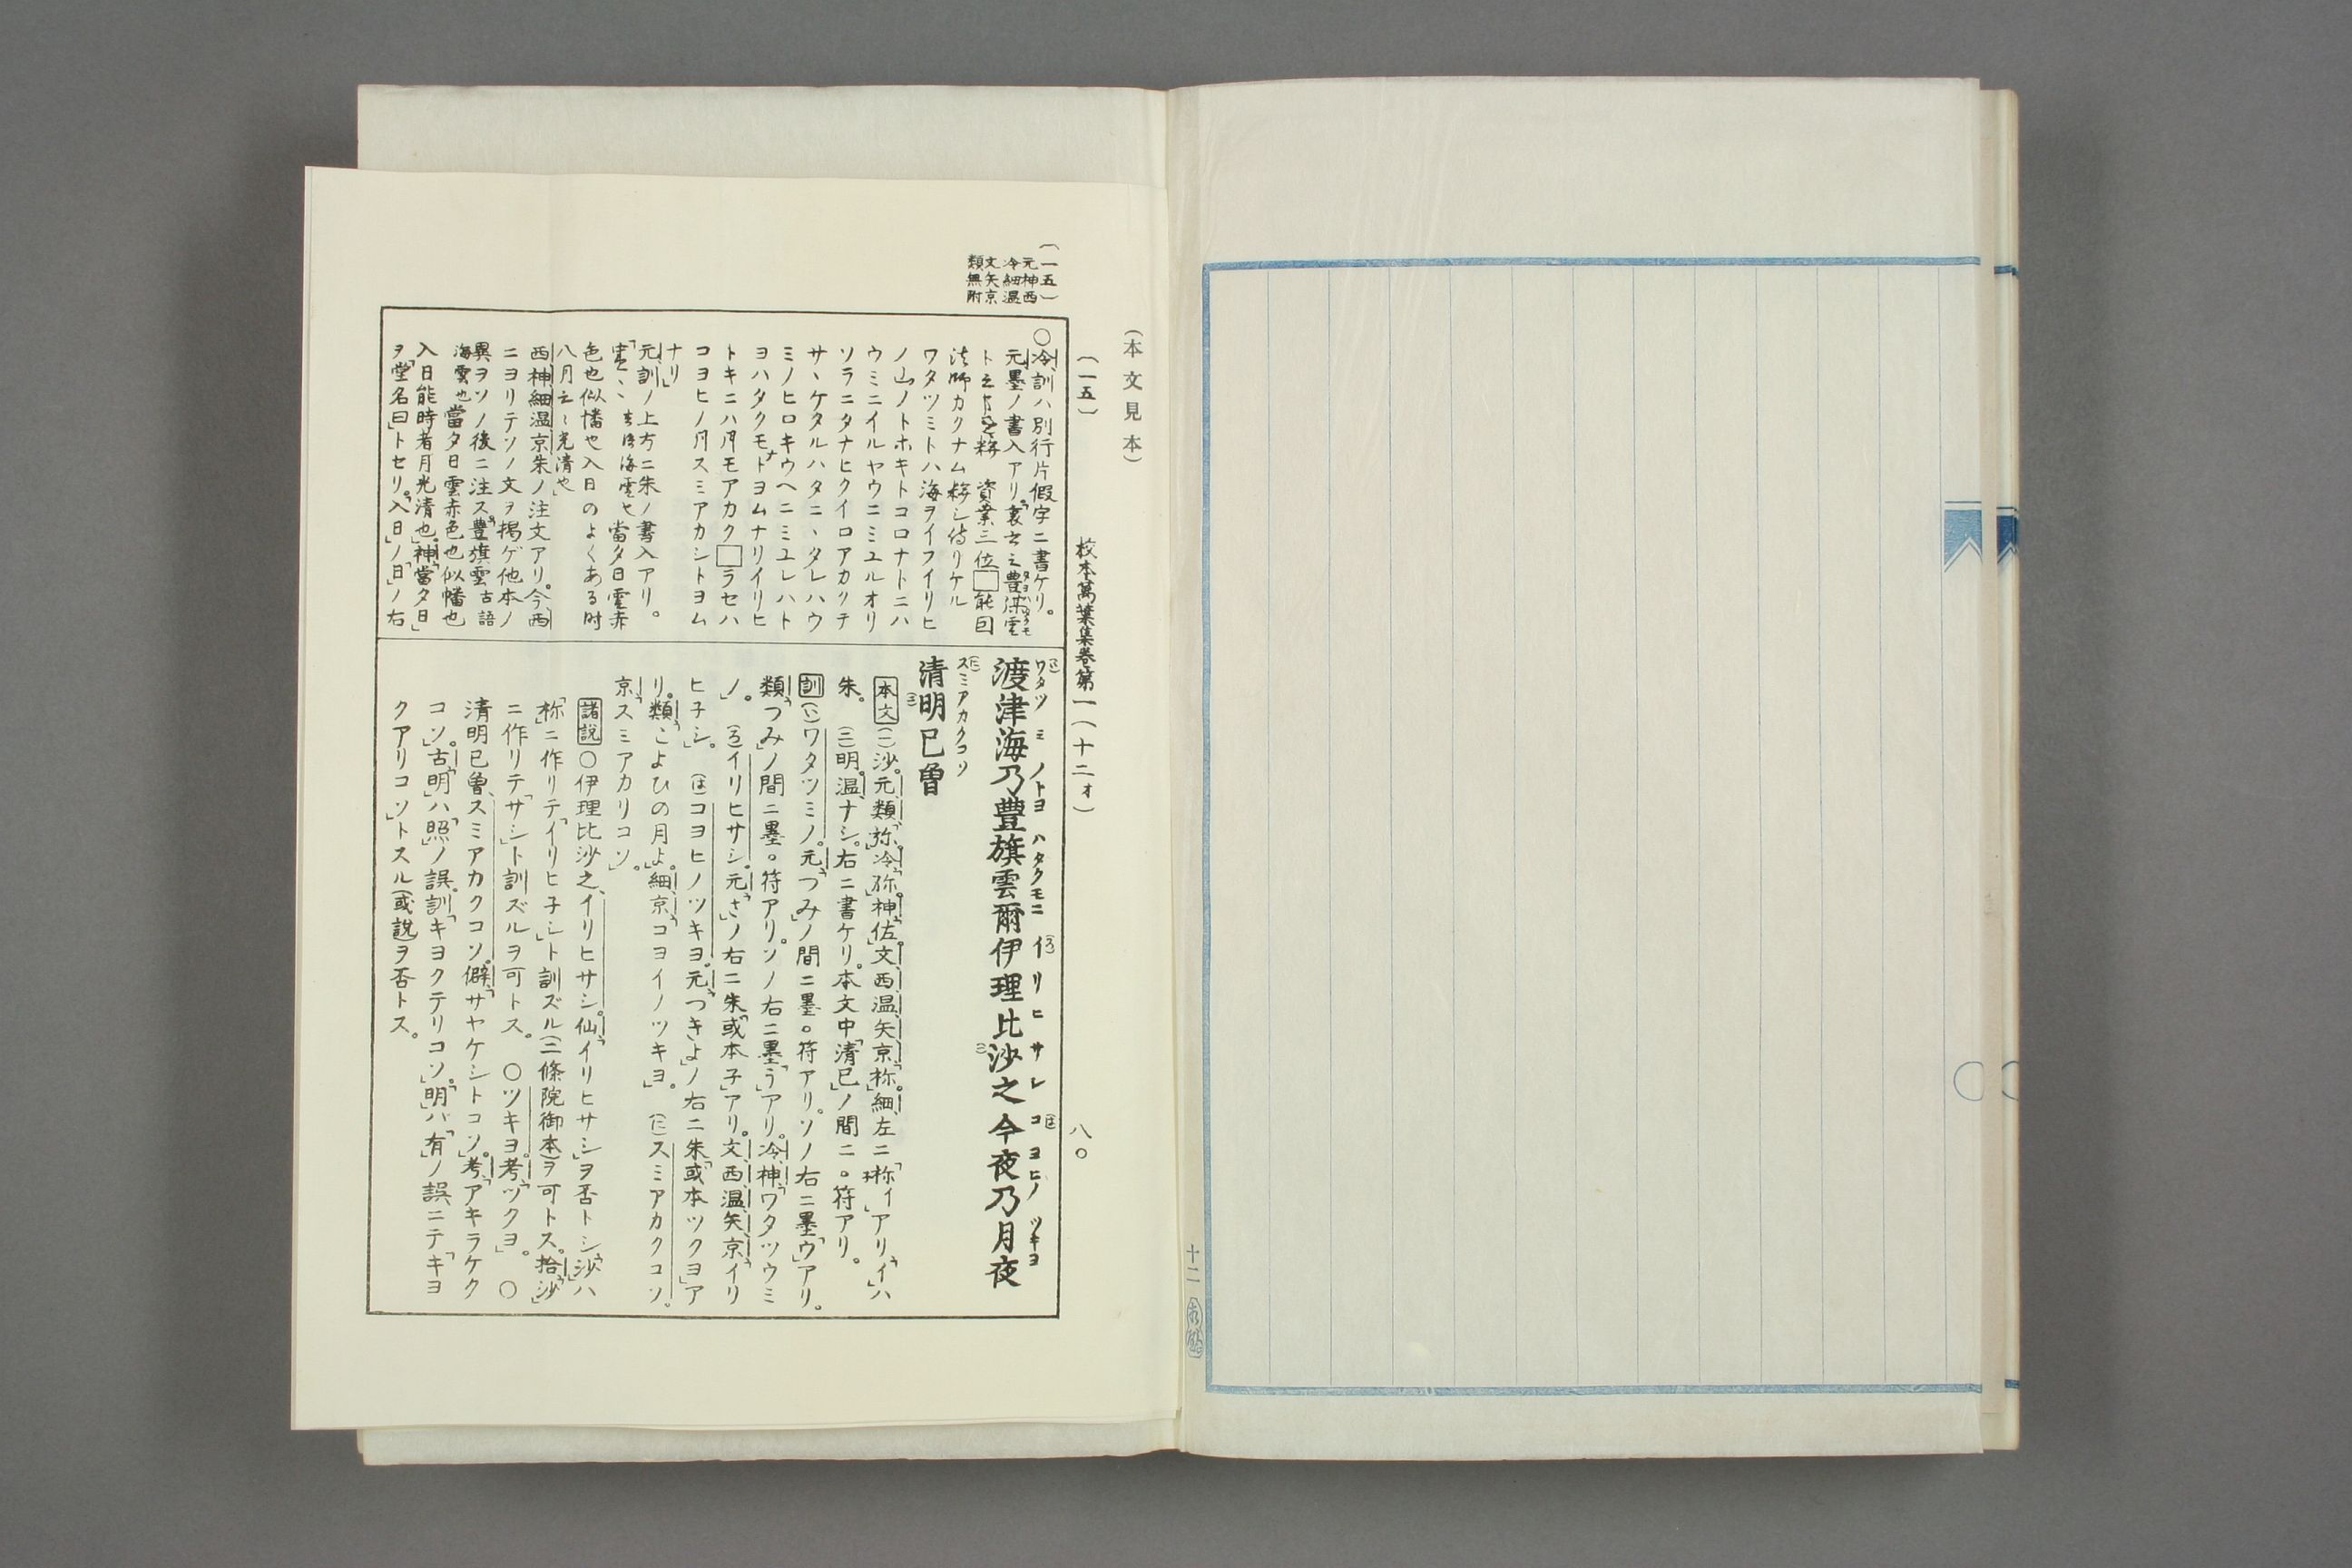 十二
(本文見本)
(一五)
校本萬葉集卷第一(十二オ)
八〇
(一五)
元神西
冷細温
文矢京
類無附
〇冷、訓ハ別行片假字ニ書ケリ。
元墨ノ書入アリ。
法師カクナム
ワタツミトハ海ヲイフイリヒ
ノ山ノトホキトコロナトニハ
ウミニイルヤウニミユルオリ
ソラニタナヒクイロアカクテ
サヽケタルハタニヽタレハウ
ミノヒロキウヘニミユレハト
ヨハタクモトヨムナリイリヒ
トキニハ月モアカク□ラセハ
コヨヒノ月スミアカシトヨム
ナリ」
元、訓ノ上方ニ朱ノ書入アリ。
海雲也當夕日雲赤
色也似幡也入日のよくある時
八月光清也」
西神細温京朱ノ注文アリ。今、西
ニヨリテソノ文ヲ揭ゲ他本ノ
異ヲソノ後ニ注ス。「豊旗雲古語
海雲也當夕日雲赤色也似幡也
入日能時者月光清也」神「當夕日」
ヲ「堂名曰」トセリ。「入日」ノ「日」ノ右
ワタツミノトヨハタクモニイリヒサシコヨヒノツキヨ
渡津海乃豊旗雲爾伊理比沙之今夜乃月夜
スミアカクコソ
清明已曽
本文(一)沙。元、類「弥」冷、「弥」。神「佐」。文、西、温、矢、京「祢」。細、左ニ「祢イ」アリ、「イ」ハ
朱。(二)明。温ナシ。右ニ書ケリ。本文中「清已」ノ間ニ〇符アリ。
訓(い)ワタツミノ。元「つみ」ノ間ニ墨〇符アリ。ソノ右ニ墨「ウ」アリ。
類「つみ」ノ間ニ墨〇符アリ。ソノ右ニ墨「う」アリ。冷、神「ワタツウミ
ノ」。(ろ)イリヒサシ。元「さ」ノ右ニ朱「或本子」アリ。文、西、温、矢、京「イリ
ヒ子シ」。(は)コヨヒノツキヨ。元「つきよ」ノ右ニ朱「或本ツクヨ」ア
リ。類「こよひの月よ」。細、京「コヨイノツキヨ」。(に)スミアカクコソ。
京「スミアカリコソ」。
諸說〇伊理比沙之、イリヒサシ。仙「イリヒサシ」ヲ否トシ「沙」ハ
「祢」ニ作リテ「イリヒ子シ」ト訓ズル(二條院御本)ヲ可トス。拾「沙」
ニ作リテ「サシ」ト訓ズルヲ可トス。〇ツキヨ。考「ツクヨ」。〇
清明已曽、スミアカクコソ。僻「サヤケシトコソ」。考「アキラケク
コソ」。古「明」ハ「照」ノ誤。訓「キヨクテリコソ」。「明」ハ「有」ノ誤ニテ「キヨ
クアリコソ」トスル(或說)ヲ否トス。